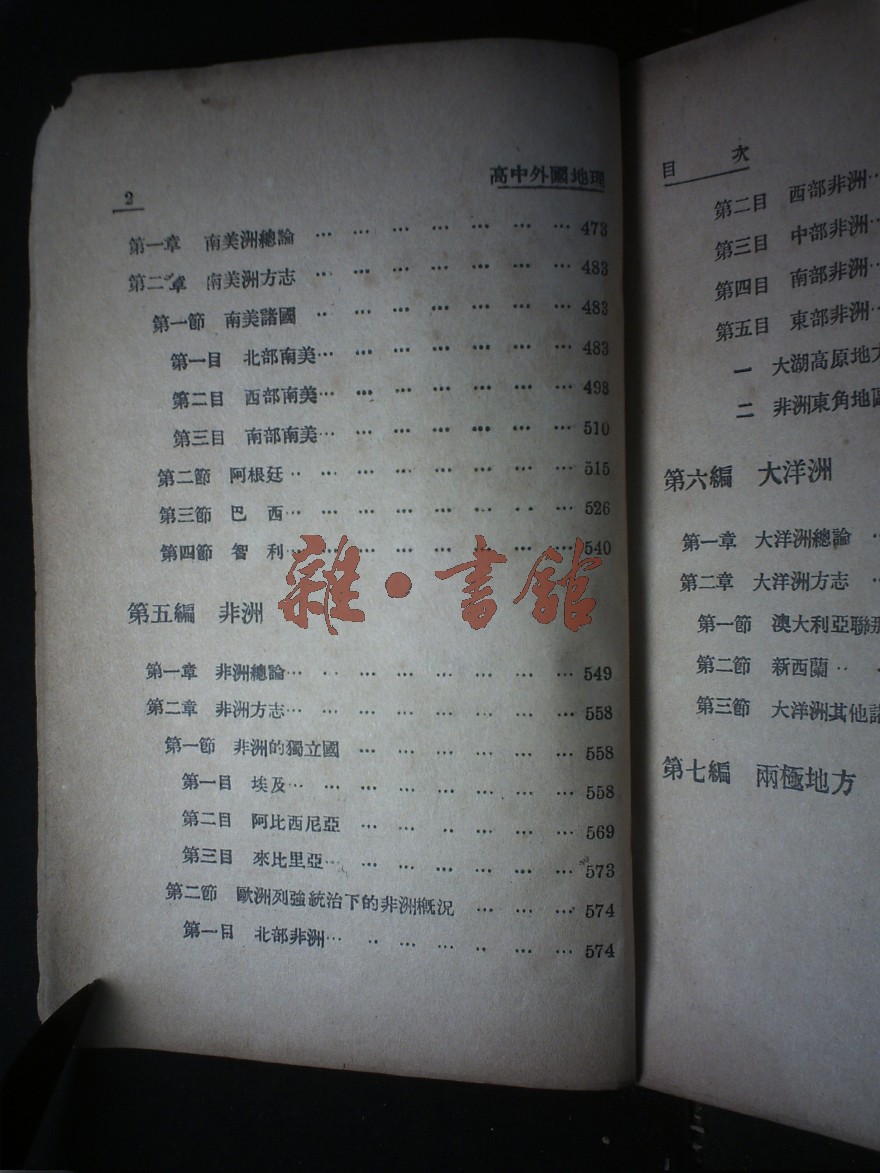 2
高中外國地理
第一章 南美洲總論 … … … … … … … 473
第二章 南美洲方志 … … … … … … … 483
第一節 南美諸國 … … … … … … … 483
第一目 北部南美… … … … … … … 483
第二目 西部南美… … … … … … … 498
第三目 南部南美… … … … … … … 510
第二節 阿根廷… … … … … … … … 515
第三節 巴 西… … … … … … … … 526
第四節 智 利… … … … … … … … 540
雜·書館
第五編 非洲
第一章 非洲總論… … … … … … … … 549
第二章 非洲方志… … … … … … … … 558
第一節 非洲的獨立國 … … … … … … 558
第一目 埃及… … … … … … … … 558
第二目 阿比西尼亞 … … … … … … 569
第三目 來比里亞… … … … … … … 573
第二節 歐洲列強統治下的非洲概況 … … … 574
第一目 北部非洲… … … … … … … 574
目 次
第二目 西部非洲…
第三目 中部非洲…
第四目 南部非洲…
第五目 東部非洲…
一 大湖高原地
二 非洲東角地區
第六編 大洋洲
第一章 大洋洲總論 …
第二章 大洋洲方志 …
第一節 澳大利亞聯
第二節 新西蘭…
第三節 大洋洲其他
第七編 兩極地方